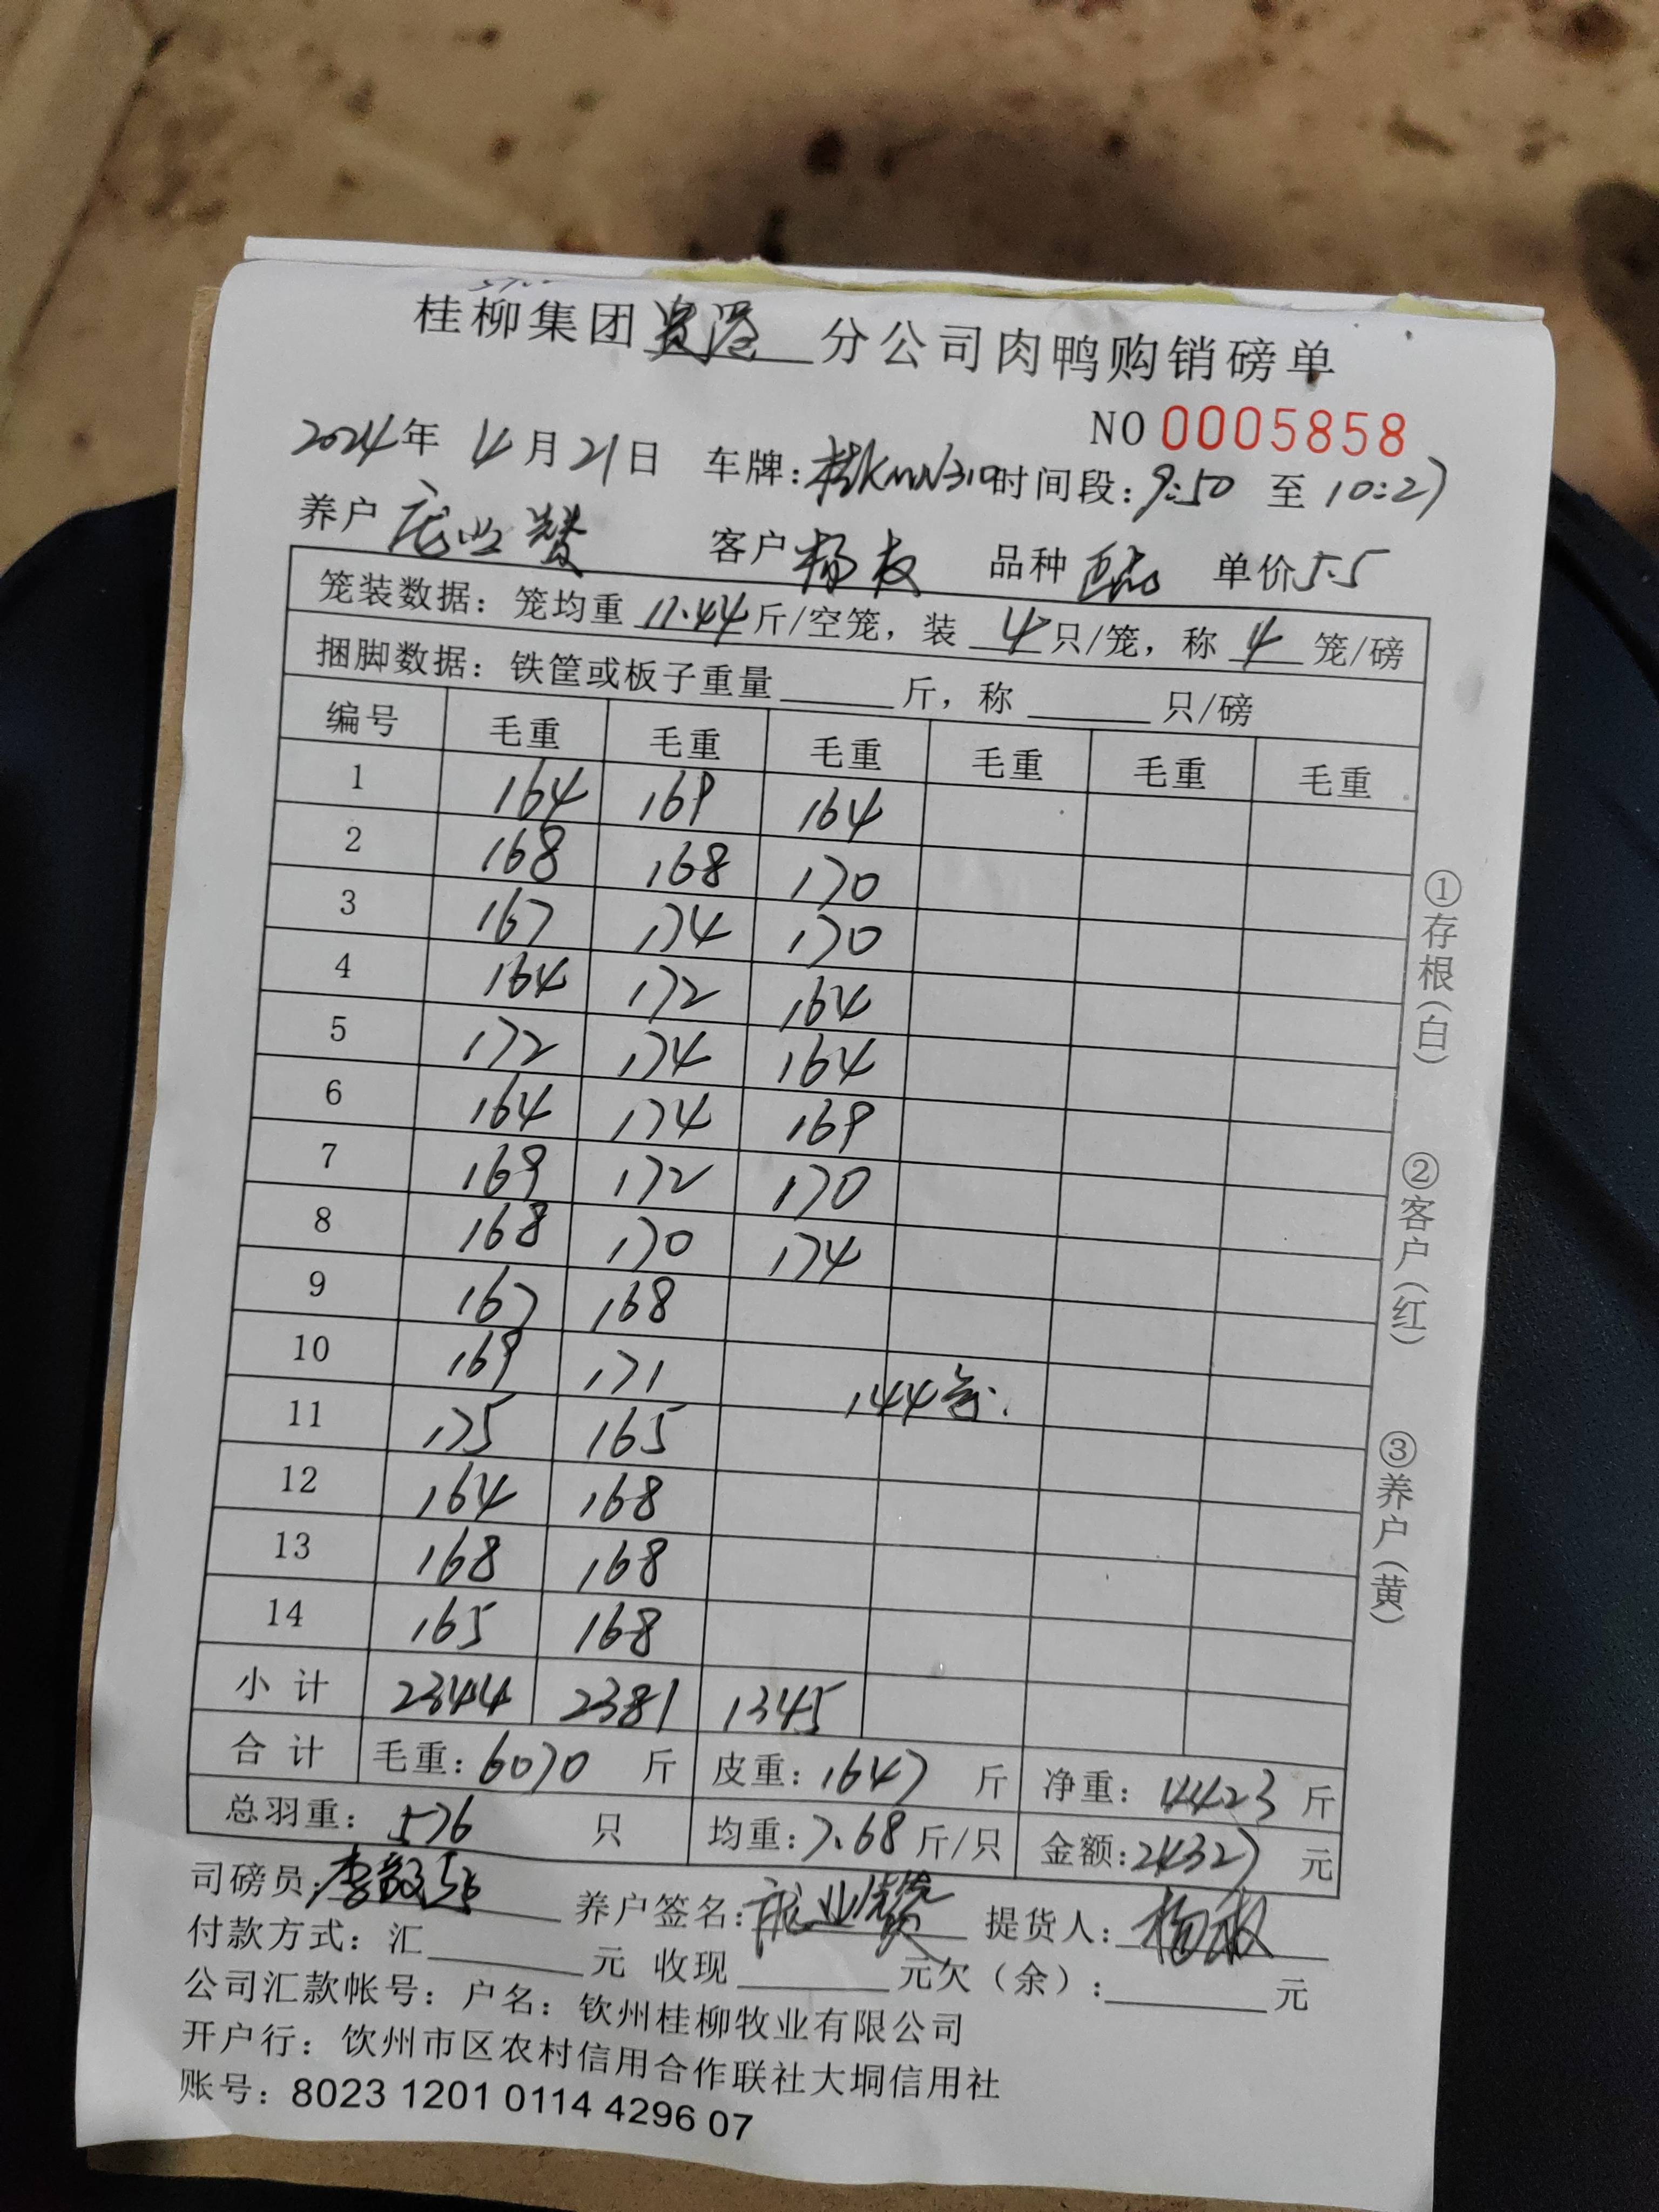 桂柳集团贵港分公司肉鸭购销磅单
NO 0005858
2024年 4月21日 车牌:桂KMN310 时间段:9:50 至 10:27
养户 庞业赞 客户 杨权 品种 单价5.5
笼装数据：笼均重 11.44 斤/空笼，装 4 只/笼，称 4 笼/磅
捆脚数据：铁筐或板子重量 斤，称 只/磅
编号 毛重 毛重 毛重 毛重 毛重 毛重
1 164 169 164
2 168 168 170
3 167 174 170
4 164 172 164
5 172 174 164
6 164 174 169
7 169 172 170
8 168 170 174
9 167 168
10 169 171
144笼.
11 175 165
12 164 168
13 168 168
14 165 168
小计 2344 2381 1345
合计 毛重：6070 斤 皮重：1647 斤 净重：4423 斤
总羽重：576 只 均重：7.68 斤/只 金额:24327 元
司磅员: 养户签名:庞业赞 提货人:杨权
付款方式：汇 元 收现 元欠（余）: 元
公司汇款帐号：户名：钦州桂柳牧业有限公司
开户行：钦州市区农村信用合作联社大垌信用社
账号：8023 1201 0114 4296 07
①存根（白）
②客户（红）
③养户（黄）